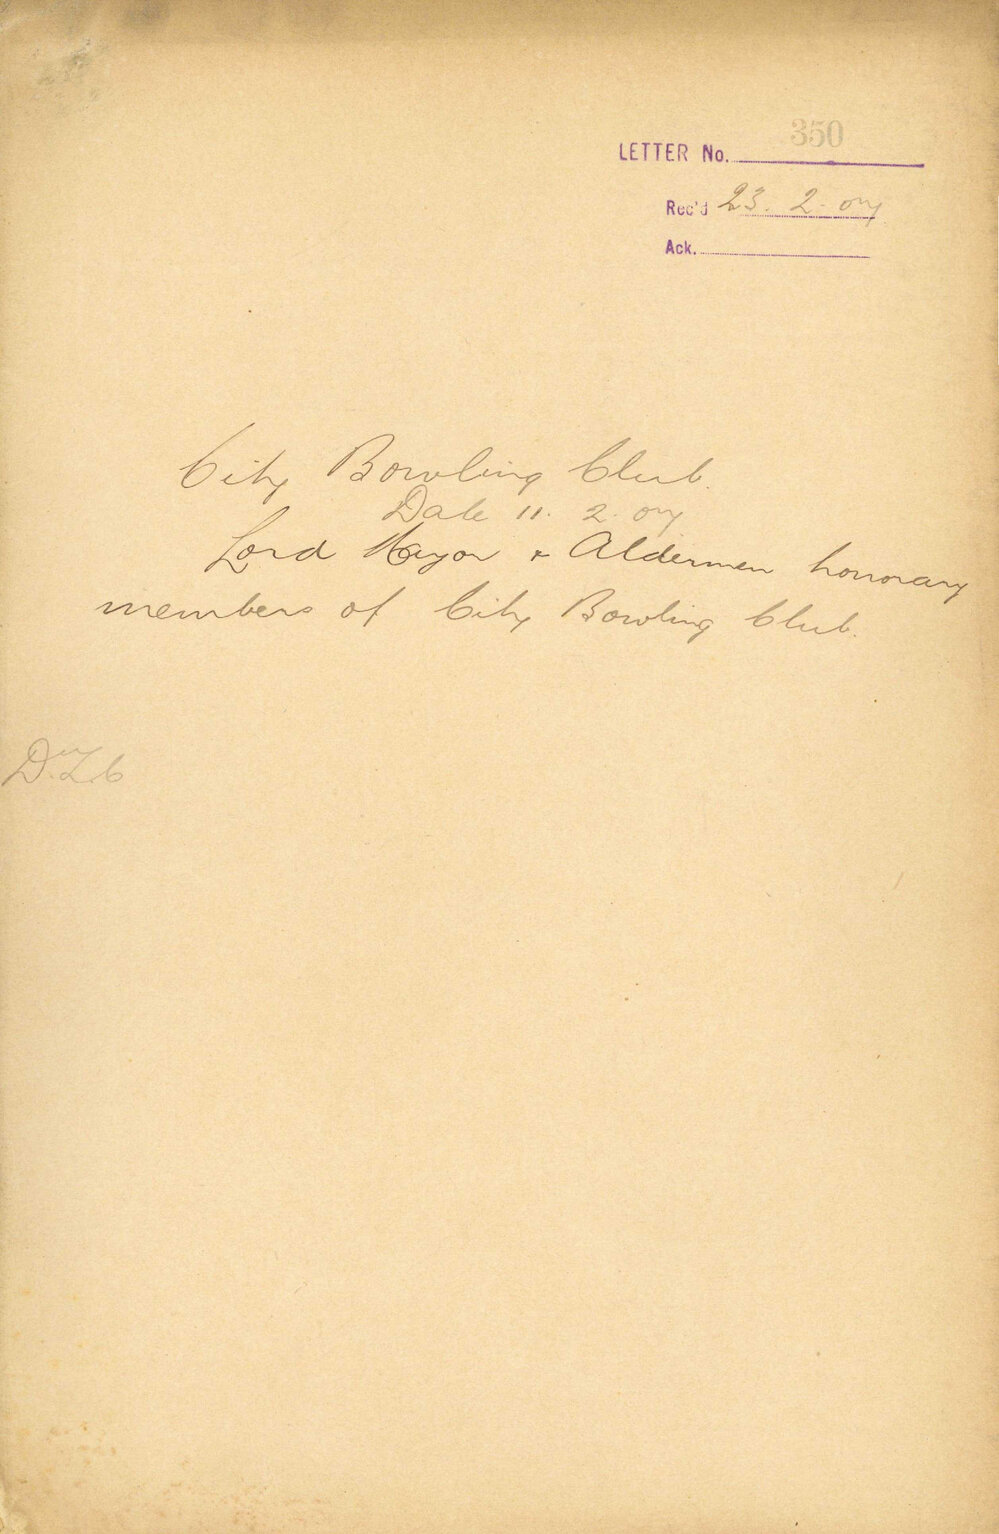 LETTER No. 350
Rec'd 23. 2. 07
Ack.
City Bowling Club.
Date 11. 2. 07
Lord Mayor & Aldermen honorary
members of City Bowling Club.